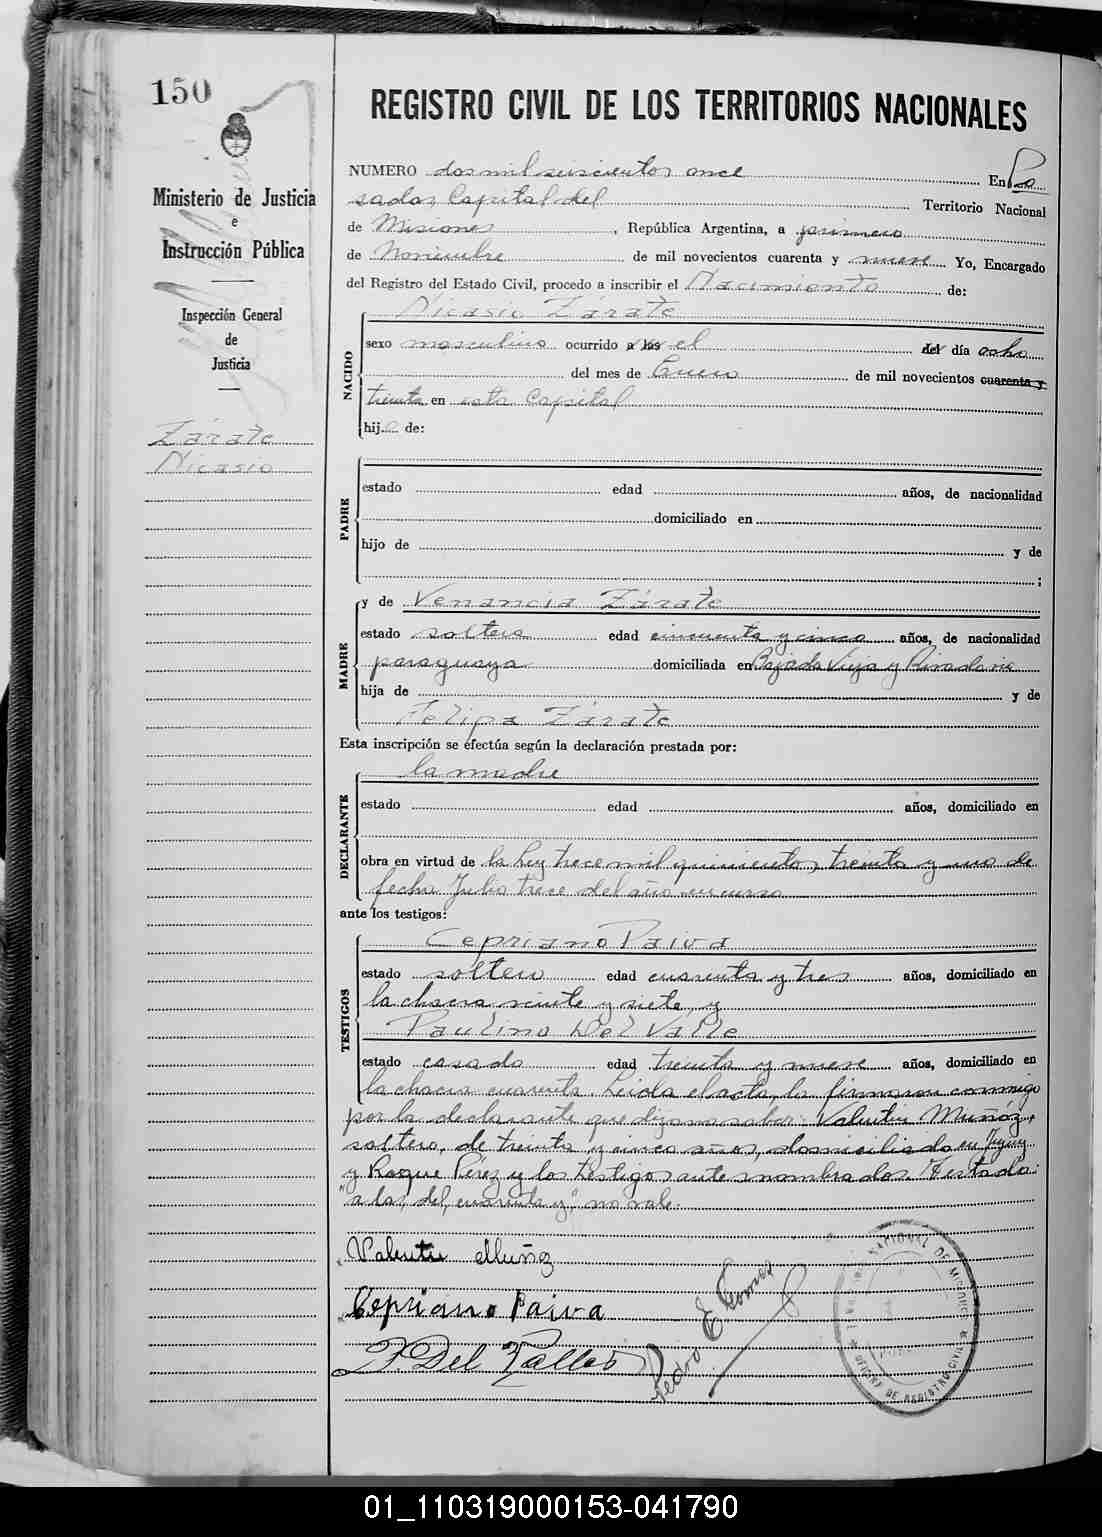 150
Ministerio de Justicia
e
Instrucción Pública
Inspección General
de
Justicia
Zárate
Nicasio
REGISTRO CIVIL DE LOS TERRITORIOS NACIONALES
NUMERO dos mil seiscientos once En Po
sadas Capital del Territorio Nacional
de Misiones, República Argentina, a primero
de Noviembre de mil novecientos cuarenta y nueve Yo, Encargado
del Registro del Estado Civil, procedo a inscribir el Nacimiento de:
NACIDO
Nicasio Zárate
sexo masculino ocurrido a las el del día ocho
del mes de Enero de mil novecientos cuarenta y
treinta en esta Capital
hijo de:
PADRE
estado edad años, de nacionalidad
domiciliado en
hijo de y de
;
MADRE
y de Venancia Zárate
estado soltera edad cincuenta y cinco años, de nacionalidad
paraguaya domiciliada en Bajada Vieja y Rivadavia
hija de y de
Felipa Zárate
Esta inscripción se efectúa según la declaración prestada por:
DECLARANTE
la madre
estado edad años, domiciliado en
obra en virtud de la Ley trece mil quinientos treinta y uno de
fecha Julio trece del año en curso
ante los testigos:
TESTIGOS
Cepriano Paiva
estado soltero edad cuarenta y tres años, domiciliado en
la chacra veinte y siete, y
Paulino Del Valle
estado casado edad treinta y nueve años, domiciliado en
la chacra cuarenta. Leida el acta, la firmaron conmigo
por la declarante que dijo no saber: Valentin Muñóz,
soltero, de treinta y cinco años, domiciliado en Jujuy
y Roque Pérez y los testigos ante nombrados. Testado:
"a las, del, cuarenta y," no vale.
Valentin Muñoz
Cepriano Paiva
P. Del Valle
Pedro E. Gomez
NACIONAL DE MISIONES
OFICINA DE REGISTRO CIVIL
01_110319000153-041790